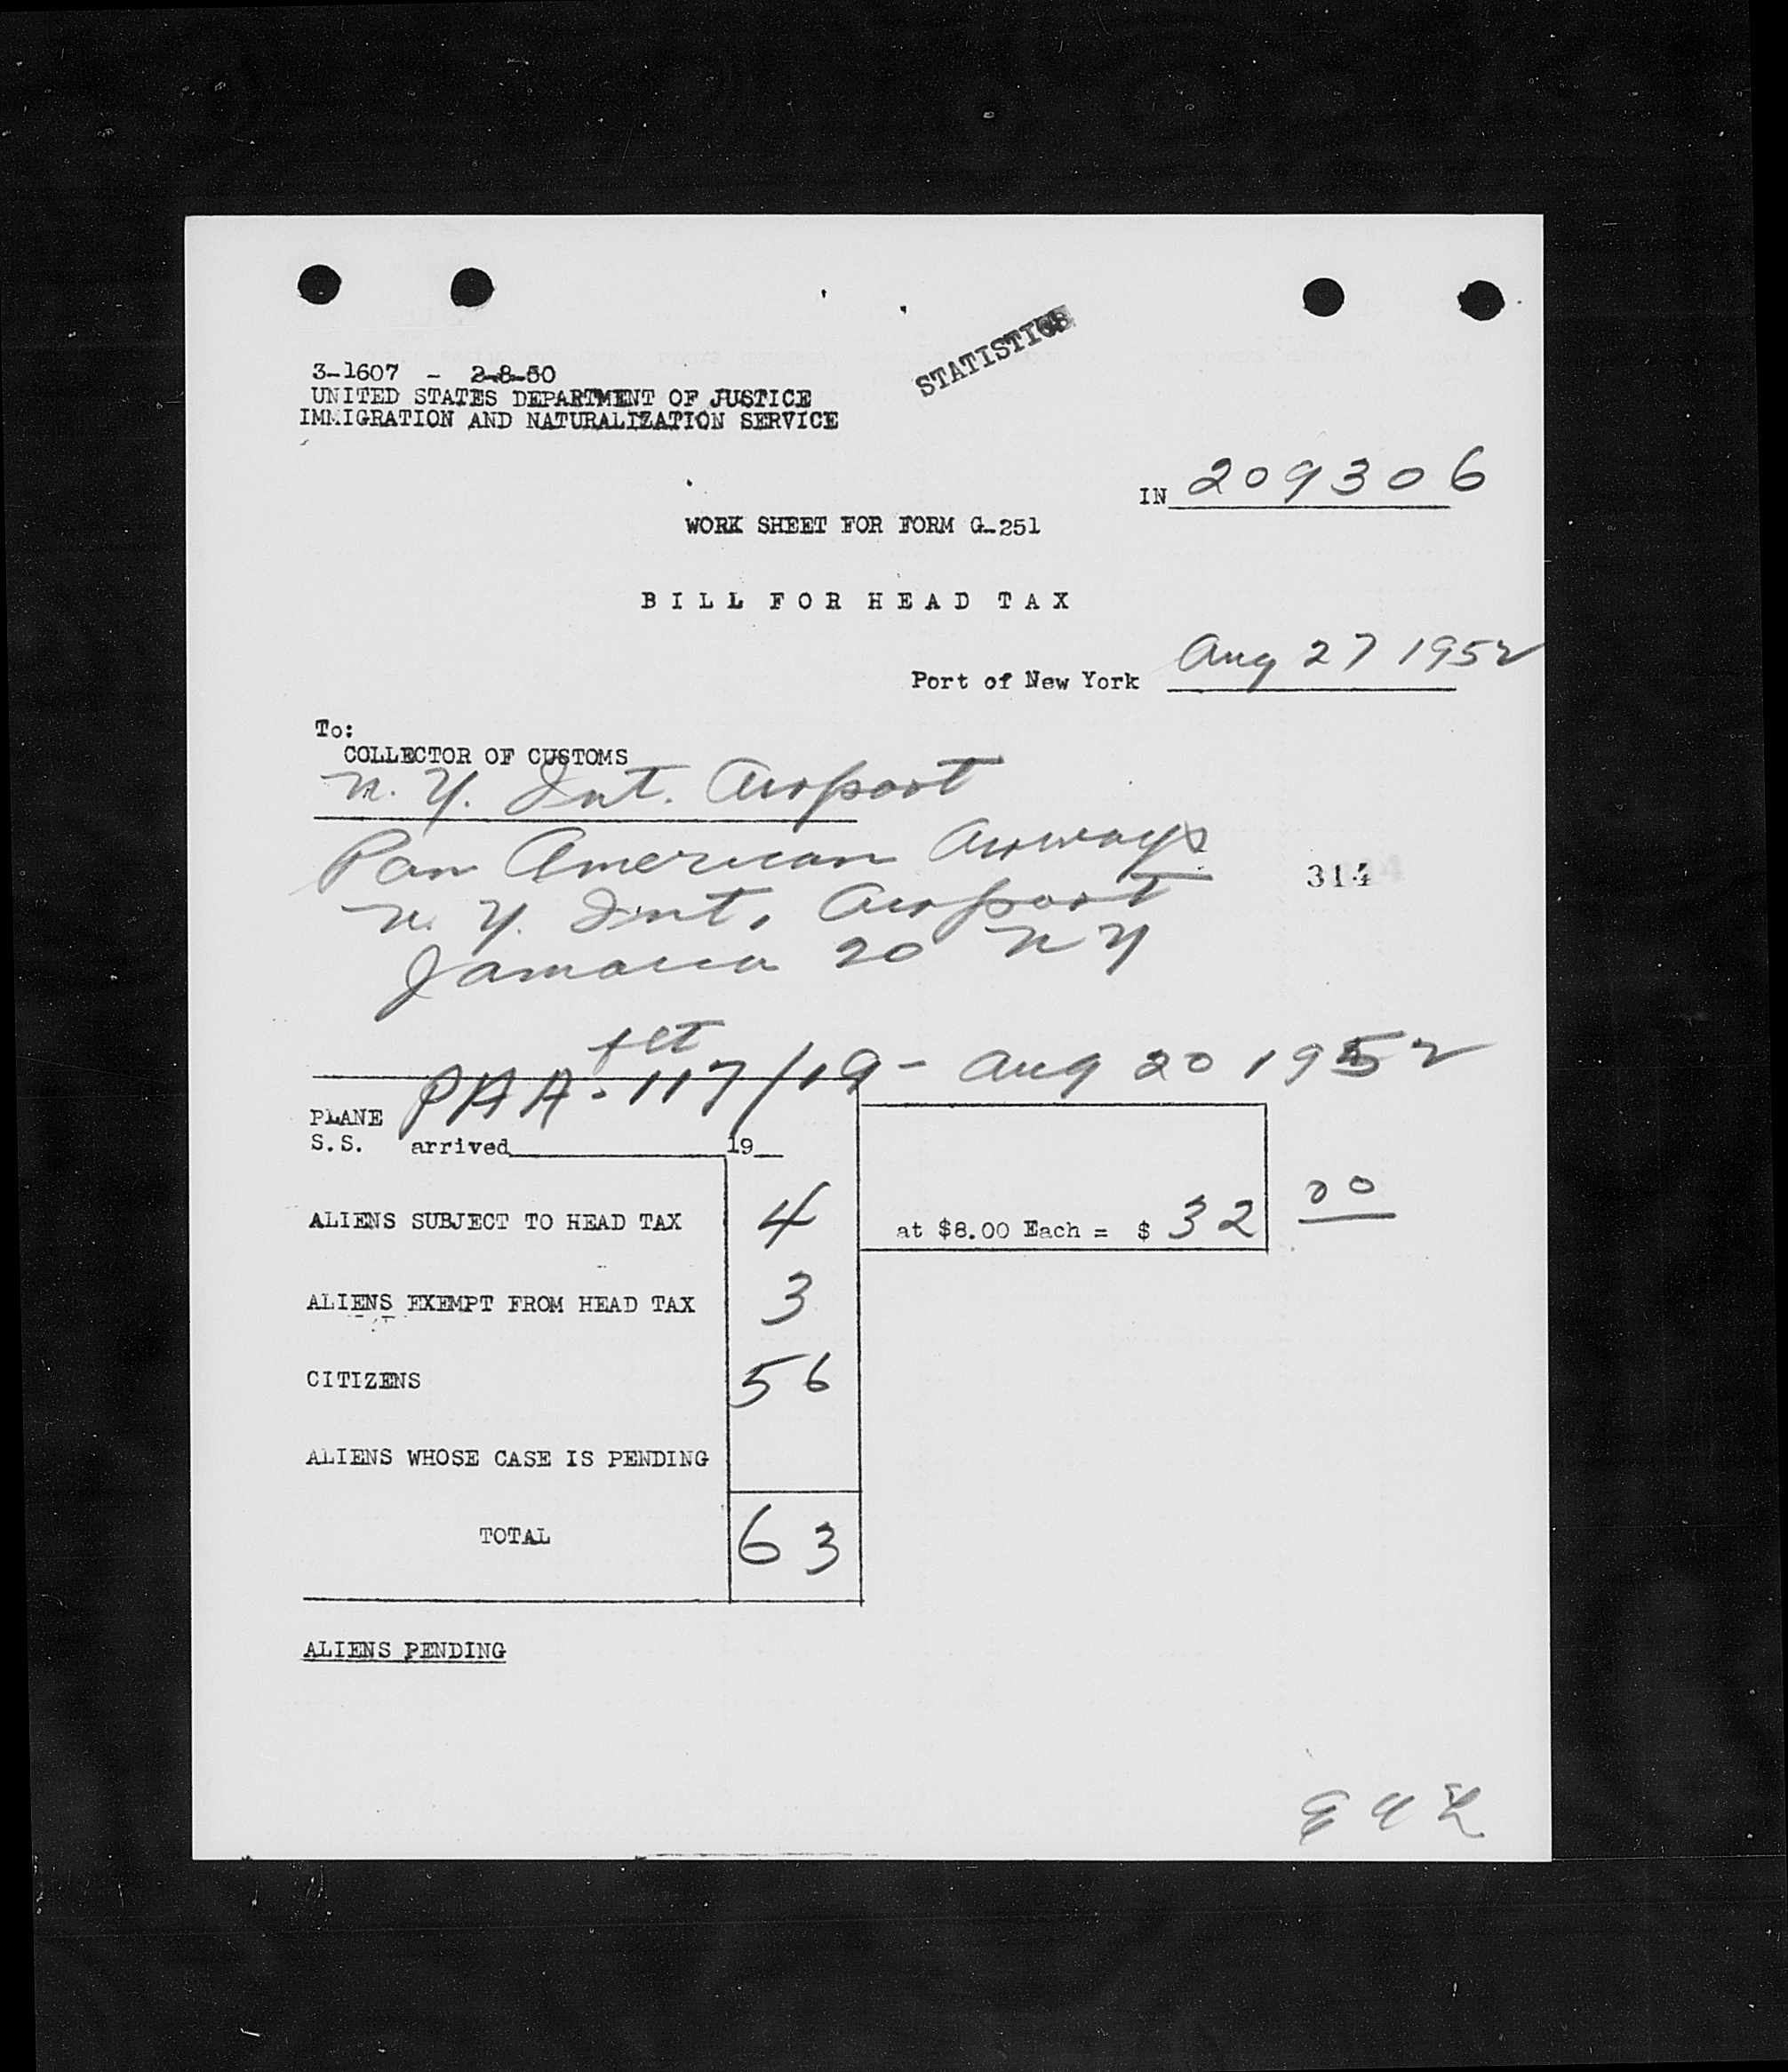 STATISTICS
3-1607 - 2-8-50
UNITED STATES DEPARTMENT OF JUSTICE
IMMIGRATION AND NATURALIZATION SERVICE
IN 209306
WORK SHEET FOR FORM G-251
BILL FOR HEAD TAX
Port of New York Aug 27 1952
To:
COLLECTOR OF CUSTOMS
N. Y. Int. Airport
Pan American Airways
314
N. Y. Int. Airport
Jamaica 20 N Y
flt
PAA - 117/19 - Aug 20 1952
PLANE
S.S. arrived 19
ALIENS SUBJECT TO HEAD TAX 4 at $8.00 Each = $ 32 00
ALIENS EXEMPT FROM HEAD TAX 3
CITIZENS 56
ALIENS WHOSE CASE IS PENDING
TOTAL 63
ALIENS PENDING